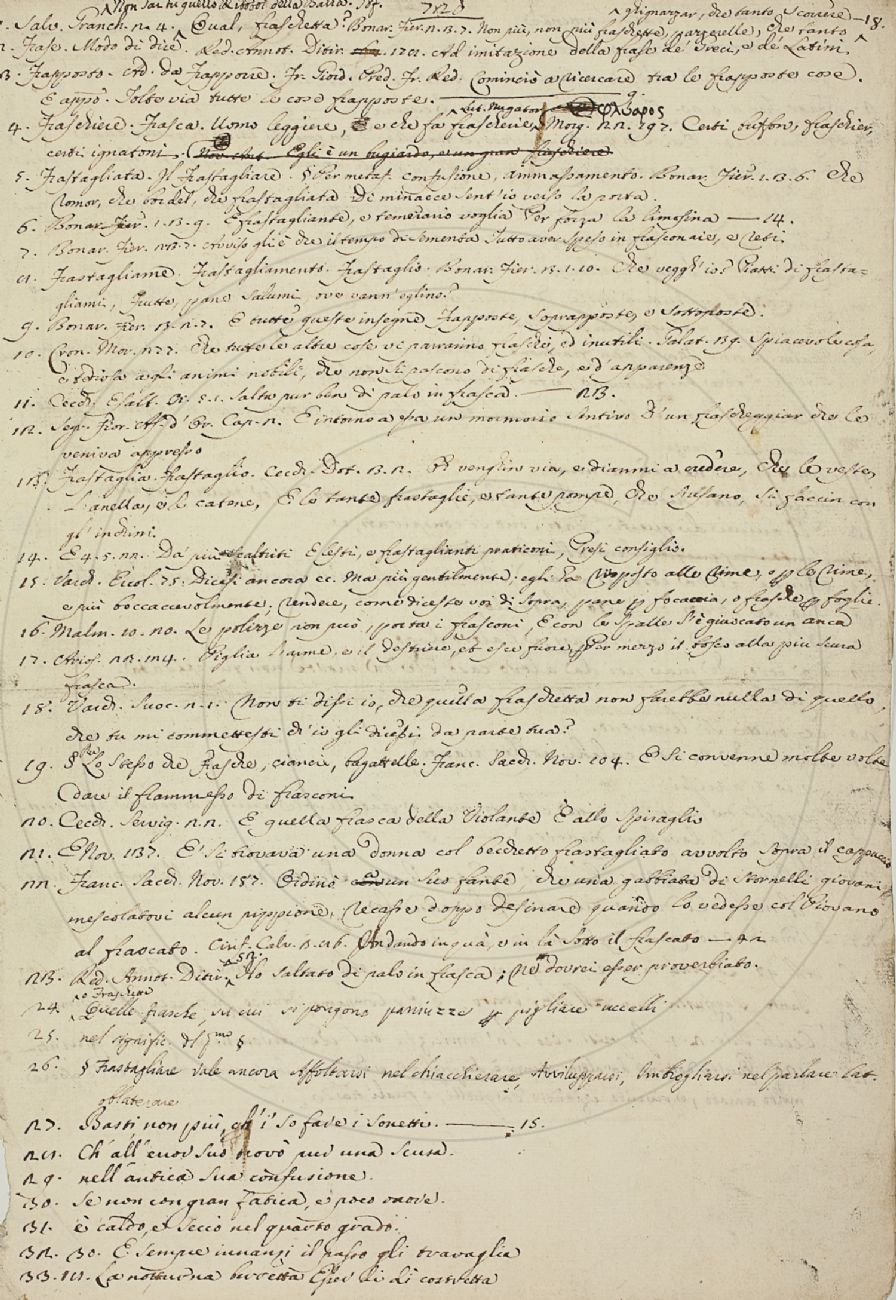 Non sai tu quello
7328
1. Salv. Granch. 2. 4. Qual, fraschetta? Bonar. Fier. 2. 3. 7. Non più, non più fraschette, pazzerelle, che tanto — 18.
ghignazzar, che tanto scorrere
2. Frase. Modo di dire. Red. Annot. Ditir. 201. Ad imitazione della frase de' Greci, e de' Latini.
3. Frapposto. Ad. da Frapporre. Fr. Giord. Pred. Fr. Red. Cominciò a ricercare tra le frapposte cose.
E appò. Tolte via tutte le cose frapposte. 9.
Lat. Nugator φλύαρος
4. Fraschiere. Frasca. Uomo leggiere, e che fa fraschierie. Morg. 22. 297. Certi buffon, fraschier,
certi ignatoni. Egli è un bugiardo, e un gran fraschiere
5. Frastagliata. Il Frastagliare. § Per metaf. confusione, ammassamento. Bonar. Fier. 1. 3. 6. Che
romor, che bordel, che frastagliata Di minacce sent' io verso la porta.
6. Bonar. Fier. 1. 3. 9. E frastagliante, e temeraria voglia Per forza la limosina — 14.
7. Bonar. Fier. 3. 7. Avviso gli è che il tempo di sementa Tutto aver speso in frasconaie, e reti.
8. Frastagliame. Frastagliamento. Frastaglio. Bonar. Fier. 3. 1. 10. Che veggh' io? Piatti di frasta-
gliami, Frutte, pane salumi, ove vann' eglino?
9. Bonar. Fier. 3. 2. 7. E tutte queste insegne Frapposte, soprapposte, e sottoposte.
10. Cron. Mor. 277. Che tutte le altre cose vi parranno frasche, ed inutili. Galat. 39. Spiacevole cosa,
e tediosa agli animi nobili, che non si pascono di frasche, e d' apparenze
11. Cecch. Esalt. Cr. 5. 1. Salta pur ben di palo in frasca. — 23.
12. Segr. Fior. As. d' Or. Cap. 2. E intorno a me un mormorio sentivo D' un frascheggiar che le
veniva appresso
13. Frastaglia. Frastaglio. Cecch. Dot. 3. 2. Or vengin via, e diammi a credere, che le veste,
L' anella, e le catene, E le tante frastaglie, e tante pompe, che s' usano, Si faccin con
gl' inchini.
14. E 4. 5. 22. Da' più scaltriti E lesti, e frastaglianti praticoni, Presi consiglio.
15. Varch. Ercol. 75. Dicesi ancora ec. Ma più gentilmente: egli ha risposto alle rime, o per le rime,
e più boccaccevolmente; rendere, come diceste voi di sopra, pane per focaccia, o frasche per foglie.
16. Malm. 10. 20. Le polizze non può, porta i frasconi, E con le spalle s' è giuocato un' anca
17. Arios. 23. 124. Piglia l' arme, e il destriero, ed esce fuore, Per mezzo il bosco alla più scura
frasca.
18. Varch. Suoc. 2. 1. Non ti dissi io, che questa fraschetta non farebbe nulla di quello,
che tu mi commettesti ch' io gli dicessi da parte tua?
19. § Per Lo stesso che Frasche, ciance, bagattelle. Franc. Sacch. Nov. 104. E si convenne molte volte
dare il fiammesso di frasconi
20. Cecch. Servig. 2. 2. E quella frasca della Violante È allo spiraglio
21. E Nov. 137. E' si trovava una donna col becchetto frastagliato avvolto sopra il cappuccio
22. Franc. Sacch. Nov. 187. Ordinò un suo fante, che una gabbiata di stornelli giovani,
mescolatovi alcun pippione, recasse doppo desinare quando lo vedesse col Piovano
al frascato. Ciriff. Calv. 3. 86. Andando in quà, e in là sotto il frascato — 42
23. Red. Annot. Ditir. 52. Ho saltato di palo in frasca; ne dovrei esser proverbiato.
o Fraschette
24. Quelle frasche, su cui si pongono paniuzze per pigliare uccelli
25. nel signific. del p.mo §
26. § Frastagliare vale ancora Affoltarsi nel chiacchierare, Avvilupparsi, Imbrogliarsi nel parlare Lat.
oblaterare
27. Basti non più, ch' i' so fare i sonetti. — 15.
28. Ch' all' error suo trovò per una scusa.
29. nell' antica sua confusione.
30. se non con gran fatica, e poco onore.
31. è caldo, e secco nel quarto grado.
32. 30. E sempre innanzi il passo gli travaglia
33. 111. La notturna burletta